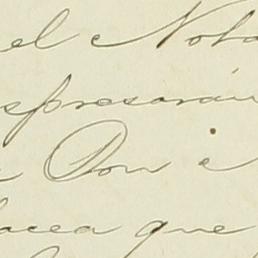 el Nota
spresarán
Don e
acea que